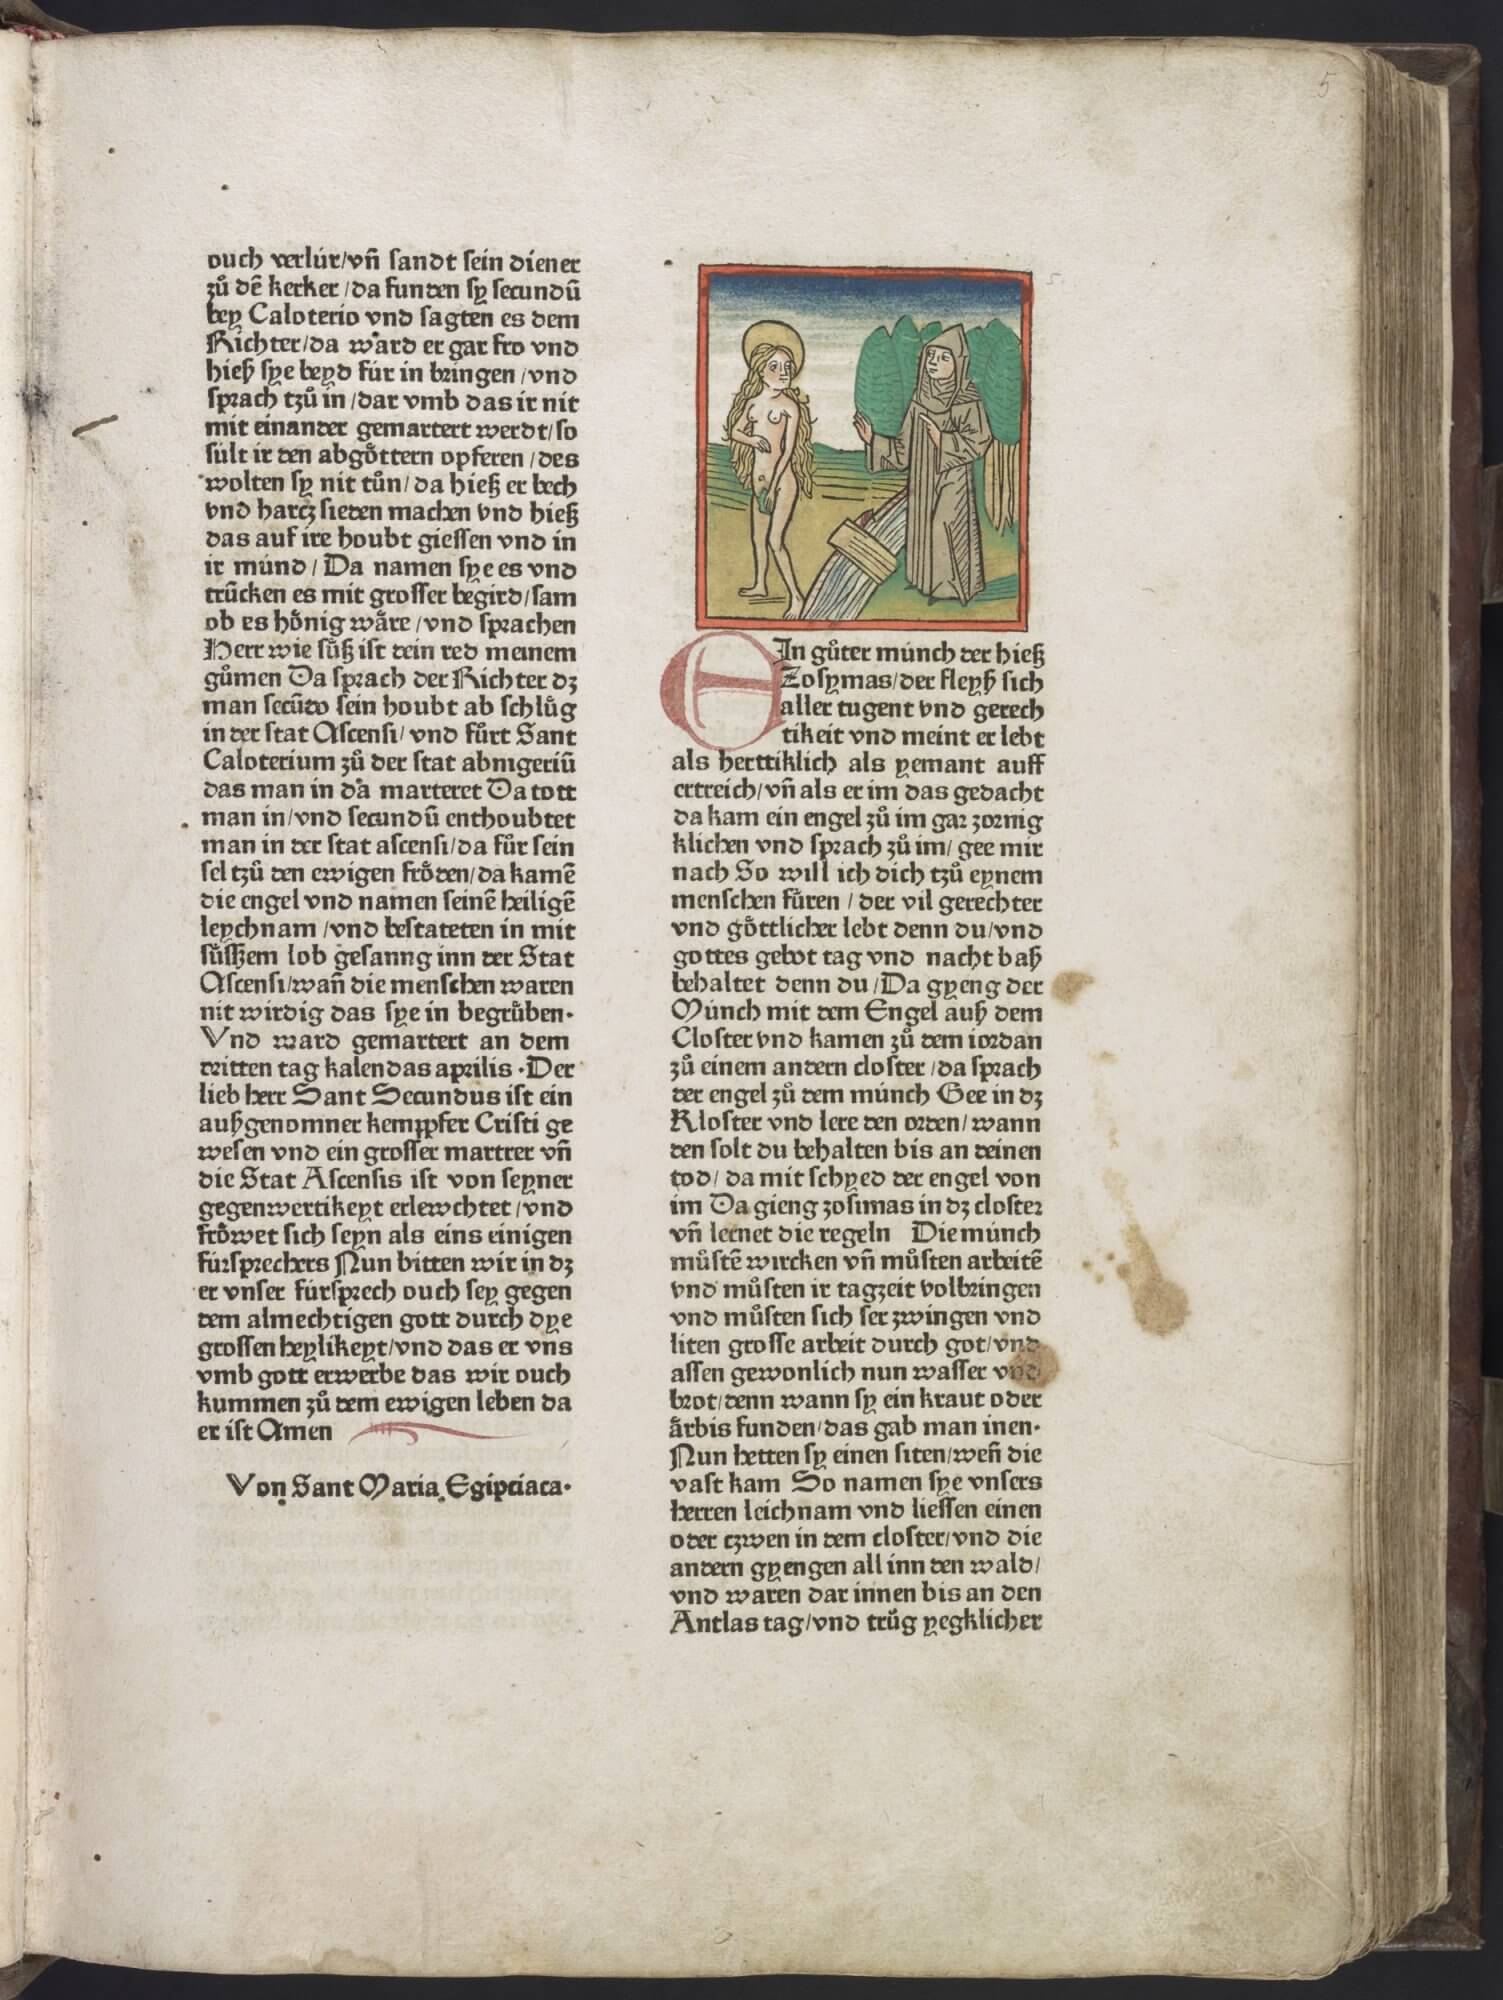 5
ouch verlúr/vñ sandt sein diener
zů dē kerker/da funden sy secundū
bey Caloterio vnd sagten es dem
Richter/da ward er gar fro vnd
hieß sye beyd fúr in bringen/vnd
sprach tzů in/dar vmb das ir nit
mit einander gemartert werdt/so
súlt ir den abgöttern opferen/des
wolten sy nit tůn/da hieß er bech
vnd harcz sieden machen vnd hieß
das auf ire houbt giessen vnd in
ir múnd/Da namen sye es vnd
trúcken es mit grosser begird/sam
ob es hönig wäre/vnd sprachen
Herr wie sůß ist dein red meinem
gůmen Da sprach der Richter dz
man secūdo sein houbt ab schlůg
in der stat Ascensi/vnd fůrt Sant
Caloterium zů der stat abnigeriū
das man in dä marteret Da tott
man in/vnd secundū enthoubtet
man in der stat ascensi/da fůr sein
sel tzů den ewigen fröden/da kamē
die engel vnd namen seinē heiligē
leychnam/vnd bestateten in mit
sůssem lob gesanng inn der Stat
Ascensi/wañ die menschen waren
nit wirdig das sye in begrůben.
Vnd ward gemartert an dem
dritten tag kalendas aprilis.Der
lieb herr Sant Secundus ist ein
außgenomner kempfer Cristi ge
wesen vnd ein grosser martrer vñ
die Stat Ascensis ist von seyner
gegenwertikeyt erlewchtet/vnd
fröwet sich seyn als eins einigen
fúrsprechers Nun bitten wir in dz
er vnser fúrsprech ouch sey gegen
dem almechtigen gott durch dye
grossen heylikeyt/vnd das er vns
vmb gott erwerbe das wir ouch
kummen zů dem ewigen leben da
er ist Amen
Von Sant Maria Egipciaca.
EIn gůter múnch der hieß
Zosymas/der fleyß sich
aller tugent vnd gerech
tikeit vnd meint er lebt
als herttiklich als yemant auff
ertreich/vñ als er im das gedacht
da kam ein engel zů im gar zornig
klichen vnd sprach zů im/gee mir
nach So will ich dich tzů eynem
menschen fůren/der vil gerechter
vnd göttlicher lebt denn du/vnd
gottes gebot tag vnd nacht baß
behaltet denn du/Da gyeng der
Múnch mit dem Engel auß dem
Closter vnd kamen zů dem iordan
zů einem andern closter/da sprach
der engel zů dem múnch Gee in dz
Kloster vnd lere den orden/wann
den solt du behalten bis an deinen
tod/da mit schyed der engel von
im Da gieng zosimas in dz closter
vñ lernet die regeln Die múnch
můstē wircken vñ můsten arbeitē
vnd můsten ir tagzeit volbringen
vnd můsten sich ser zwingen vnd
liten grosse arbeit durch got/vnd
assen gewonlich nun wasser vnd
brot/denn wann sy ein kraut oder
ärbis funden/das gab man inen.
Nun hetten sy einen siten/weñ die
vast kam So namen sye vnsers
herren leichnam vnd liessen einen
oder czwen in dem closter/vnd die
andern gyengen all inn den wald/
vnd waren dar innen bis an den
Antlas tag/vnd trůg yegklicher